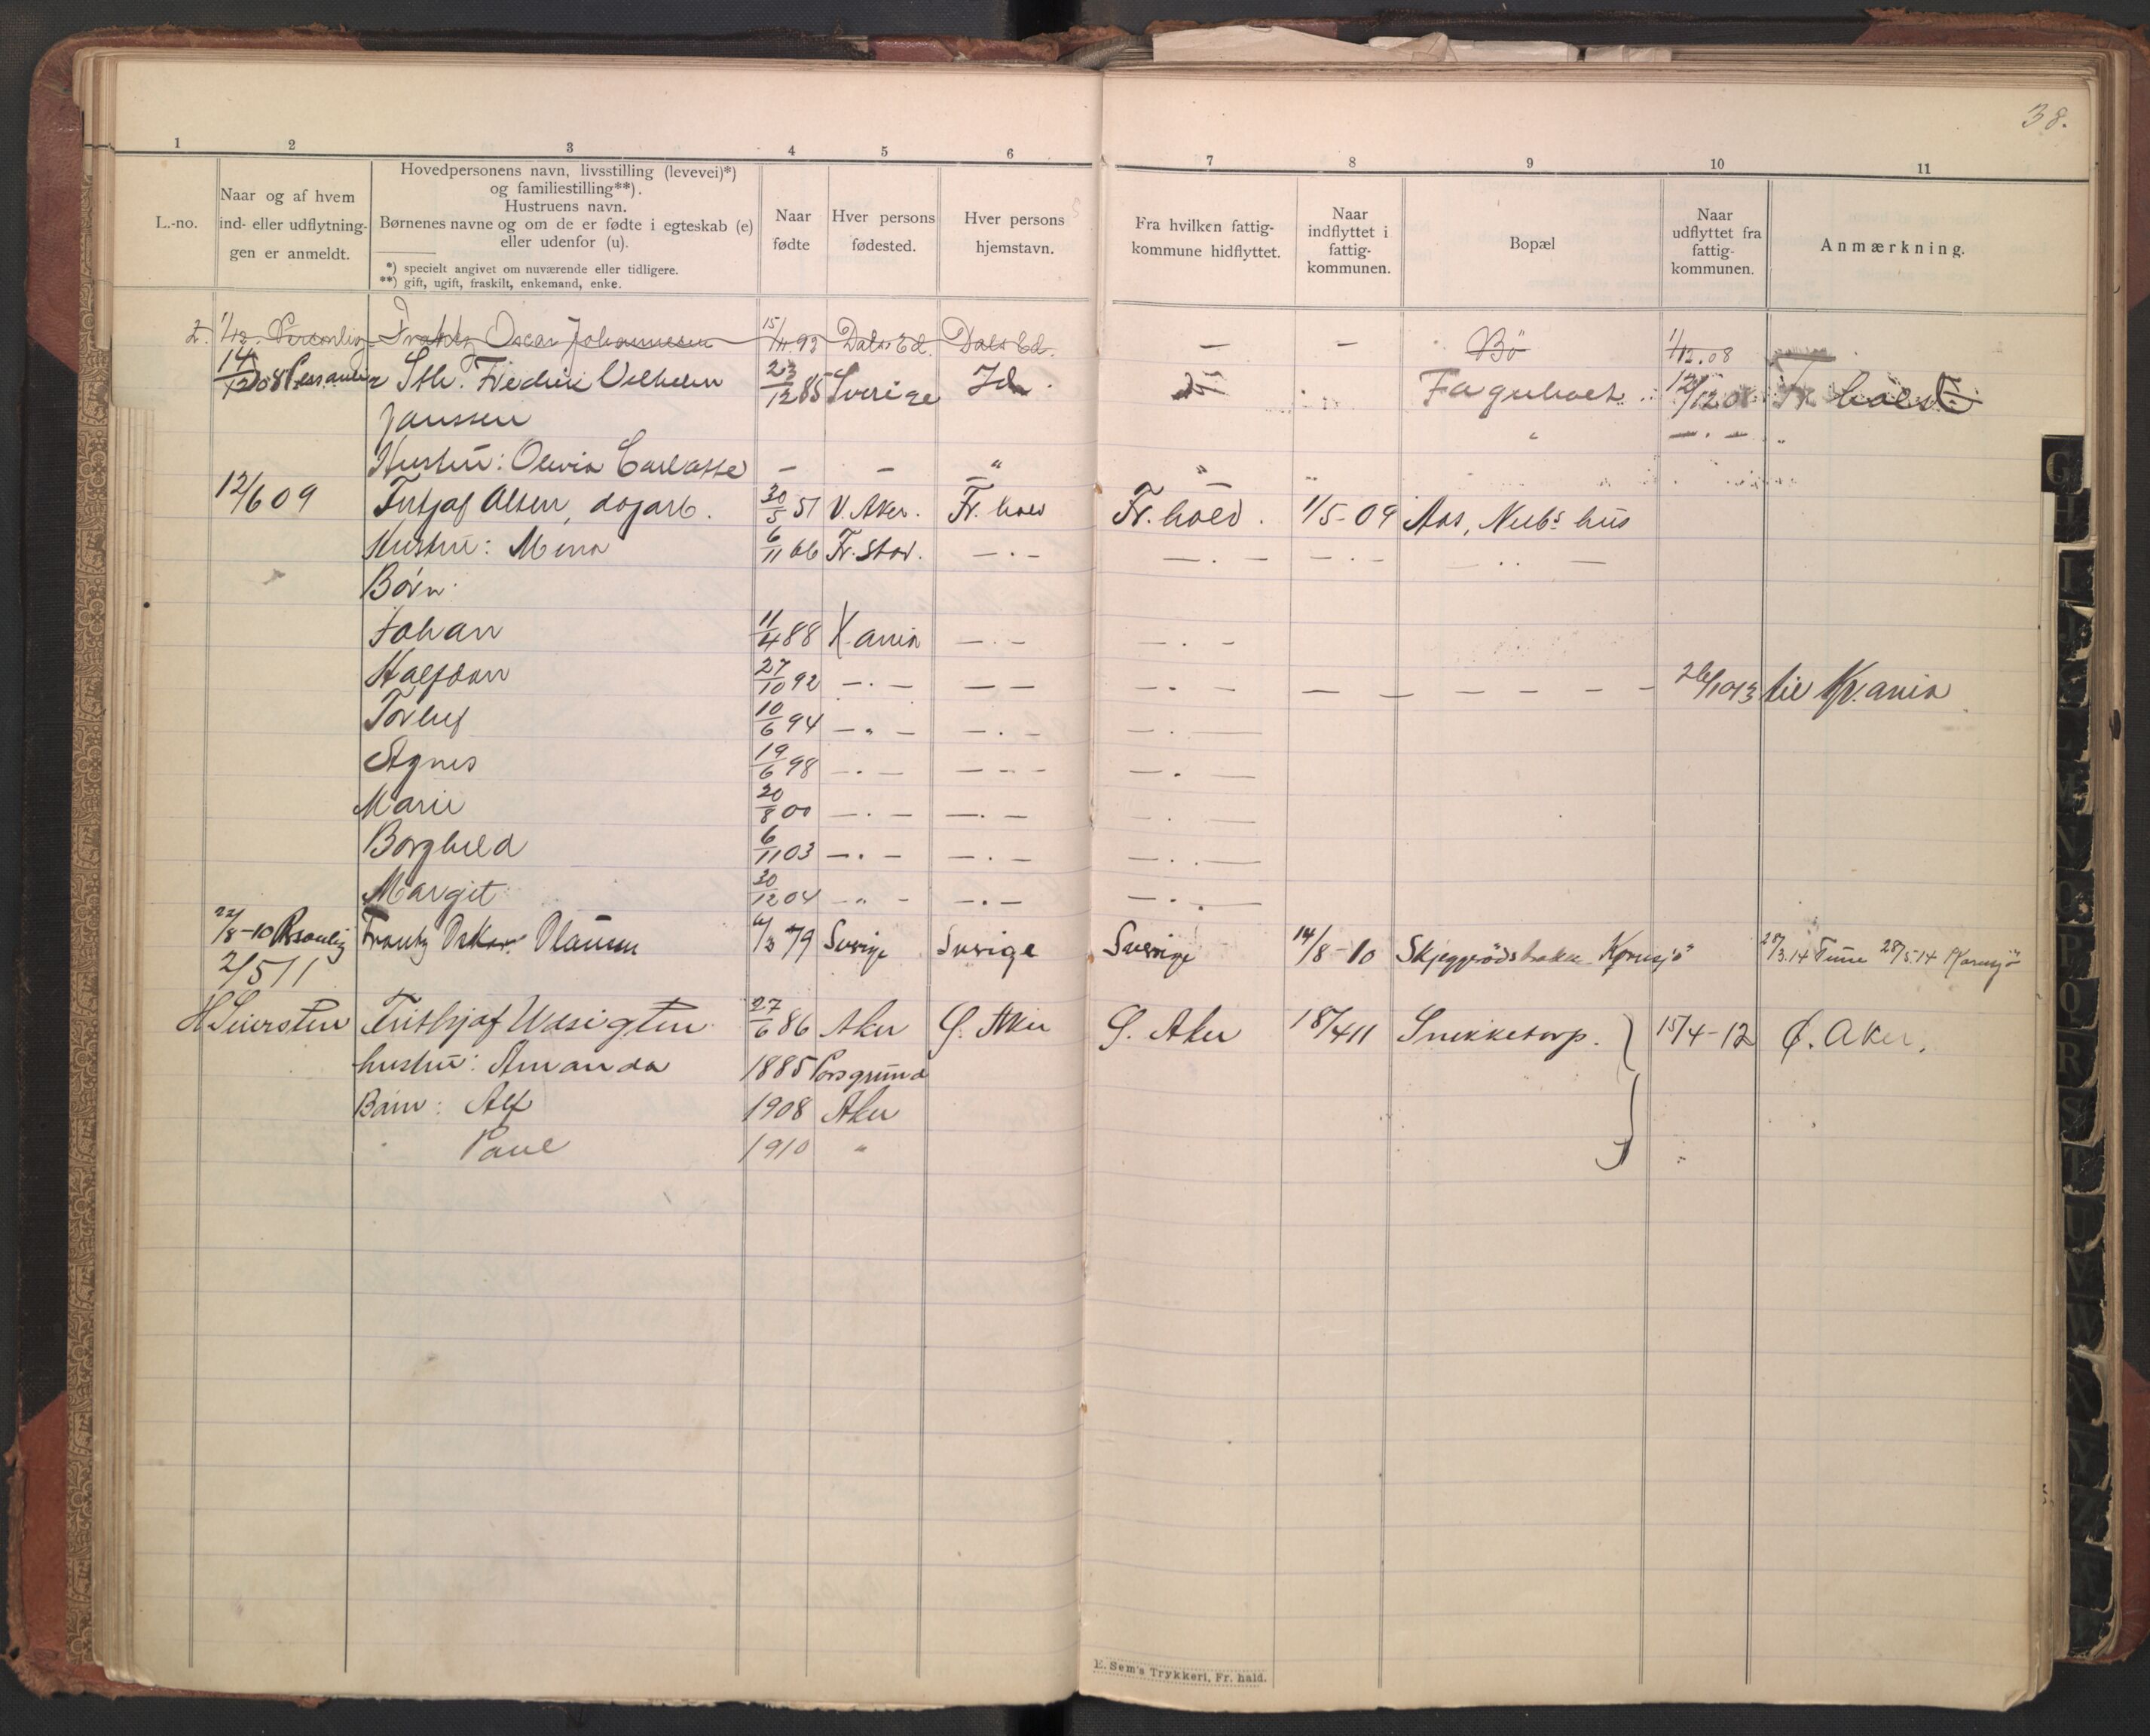 38.
1 2 3 4 5 6 7 8 9 10 11
L.-no.
Naar og af hvem
ind- eller udflytnin-
gen er anmeldt.
Hovedpersonens navn, livsstilling (levevei)*)
og familiestilling**).
Hustruens navn.
Børnenes navne og om de er fødte i egteskab (e)
eller udenfor (u).
*) specielt angivet om nuværende eller tidligere.
**) gift, ugift, fraskilt, enkemand, enke.
Naar
fødte
Hver persons
fødested.
Hver persons
hjemstavn.
Fra hvilken fattig-
kommune hidflyttet.
Naar
indflyttet i
fattig-
kommunen.
Bopæl
Naar
udflyttet fra
fattig-
kommunen.
Anmærkning.
2. 1/12. Personlig Frantz Oscar Johannesen 15/11.93 Dals Ed. Dals Ed. — — Bö 1/12.08
14/12 08 Fredrik Vilhelm 23/12 85 Sverige Id. 12/12 08
Janssen
Hustru: Olivia — — " "
12/6 09 Fritjof Olsen, dagarb. 30/5 51 V. Aker. Fr.hald Fr.hald. 1/5-09 Aas, hus
Hustru: Mina 6/11 66 Fr.stad. —.— —.— —.—
Børn:
Johan 11/4 88 X.ania —.— —.—
Halfdan 27/10 92 —.— — — —.— — — — — — — — 26/10 13 til Kr.ania
Torleif 10/6 94 —.— —.— —.—
Agnes 19/6 98 —.— — - — —.—
Marie 20/8 00 —.— —.— —.—
Borghild 6/11 03 —.— —.— —.—
Margit 30/12 04 —„- —.— —.—
22/8-10 Personlig Frantz Oskar Olausen /3 79 Sverige Sverige Sverige 14/8-10 Skjeggerødsbakke Kornsjö 28/3.14 Tune 28/5.14 Kornsjö
2/5 11
H Seiersten Frithjof Udsigten 27/6 86 Aker Ø. Aker Ø. Aker 18/4 11 Snekketorp. 15/4-12 Ø. Aker.
hustru: Amanda 1885 Porsgrund
Børn: Alf 1908 Aker
Paul 1910 "
E. Sem's Trykkeri, Fr. hald.
G
I
M
N
O
P
Q
R
S
T
U
V
W
X
Y